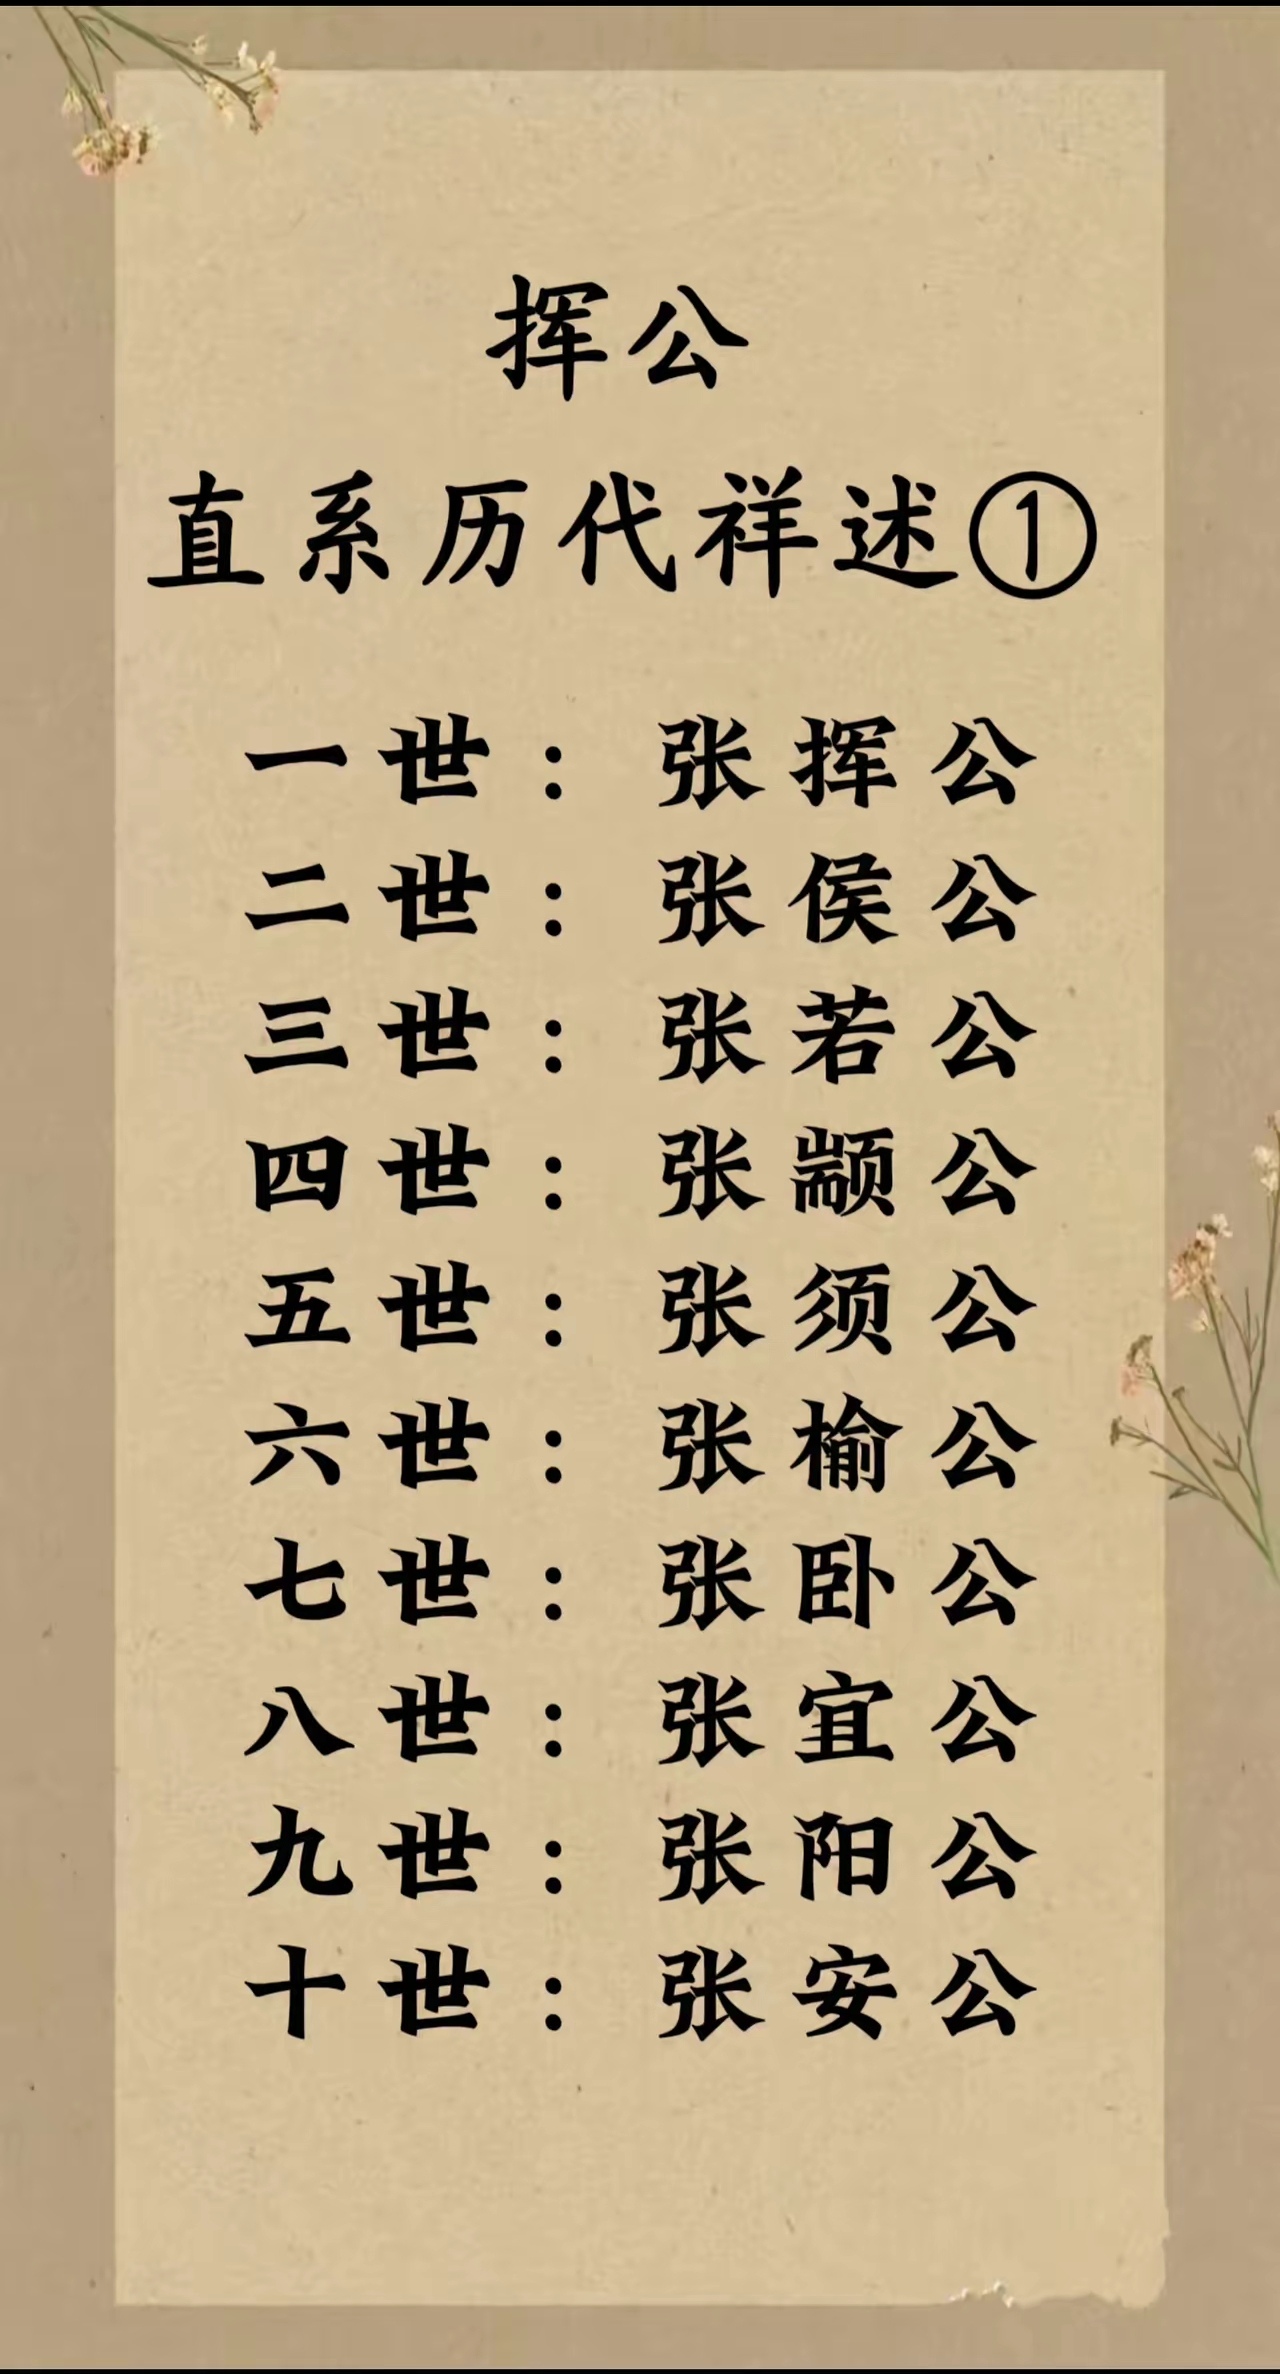 挥公
直系历代祥述①
一世：张挥公
二世：张侯公
三世：张若公
四世：张颛公
五世：张须公
六世：张榆公
七世：张卧公
八世：张宜公
九世：张阳公
十世：张安公